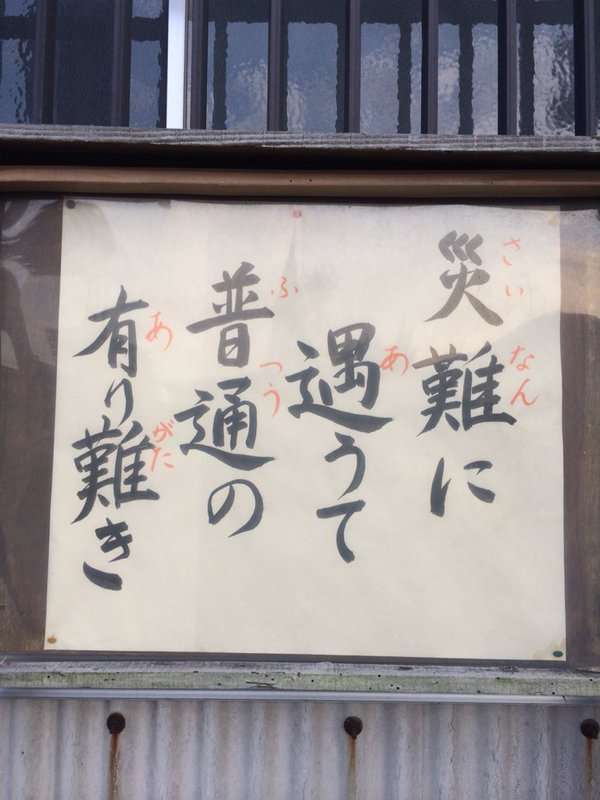 災難に
遇うて
普通の
有り難き
さいなん
あ
ふつう
あ がた